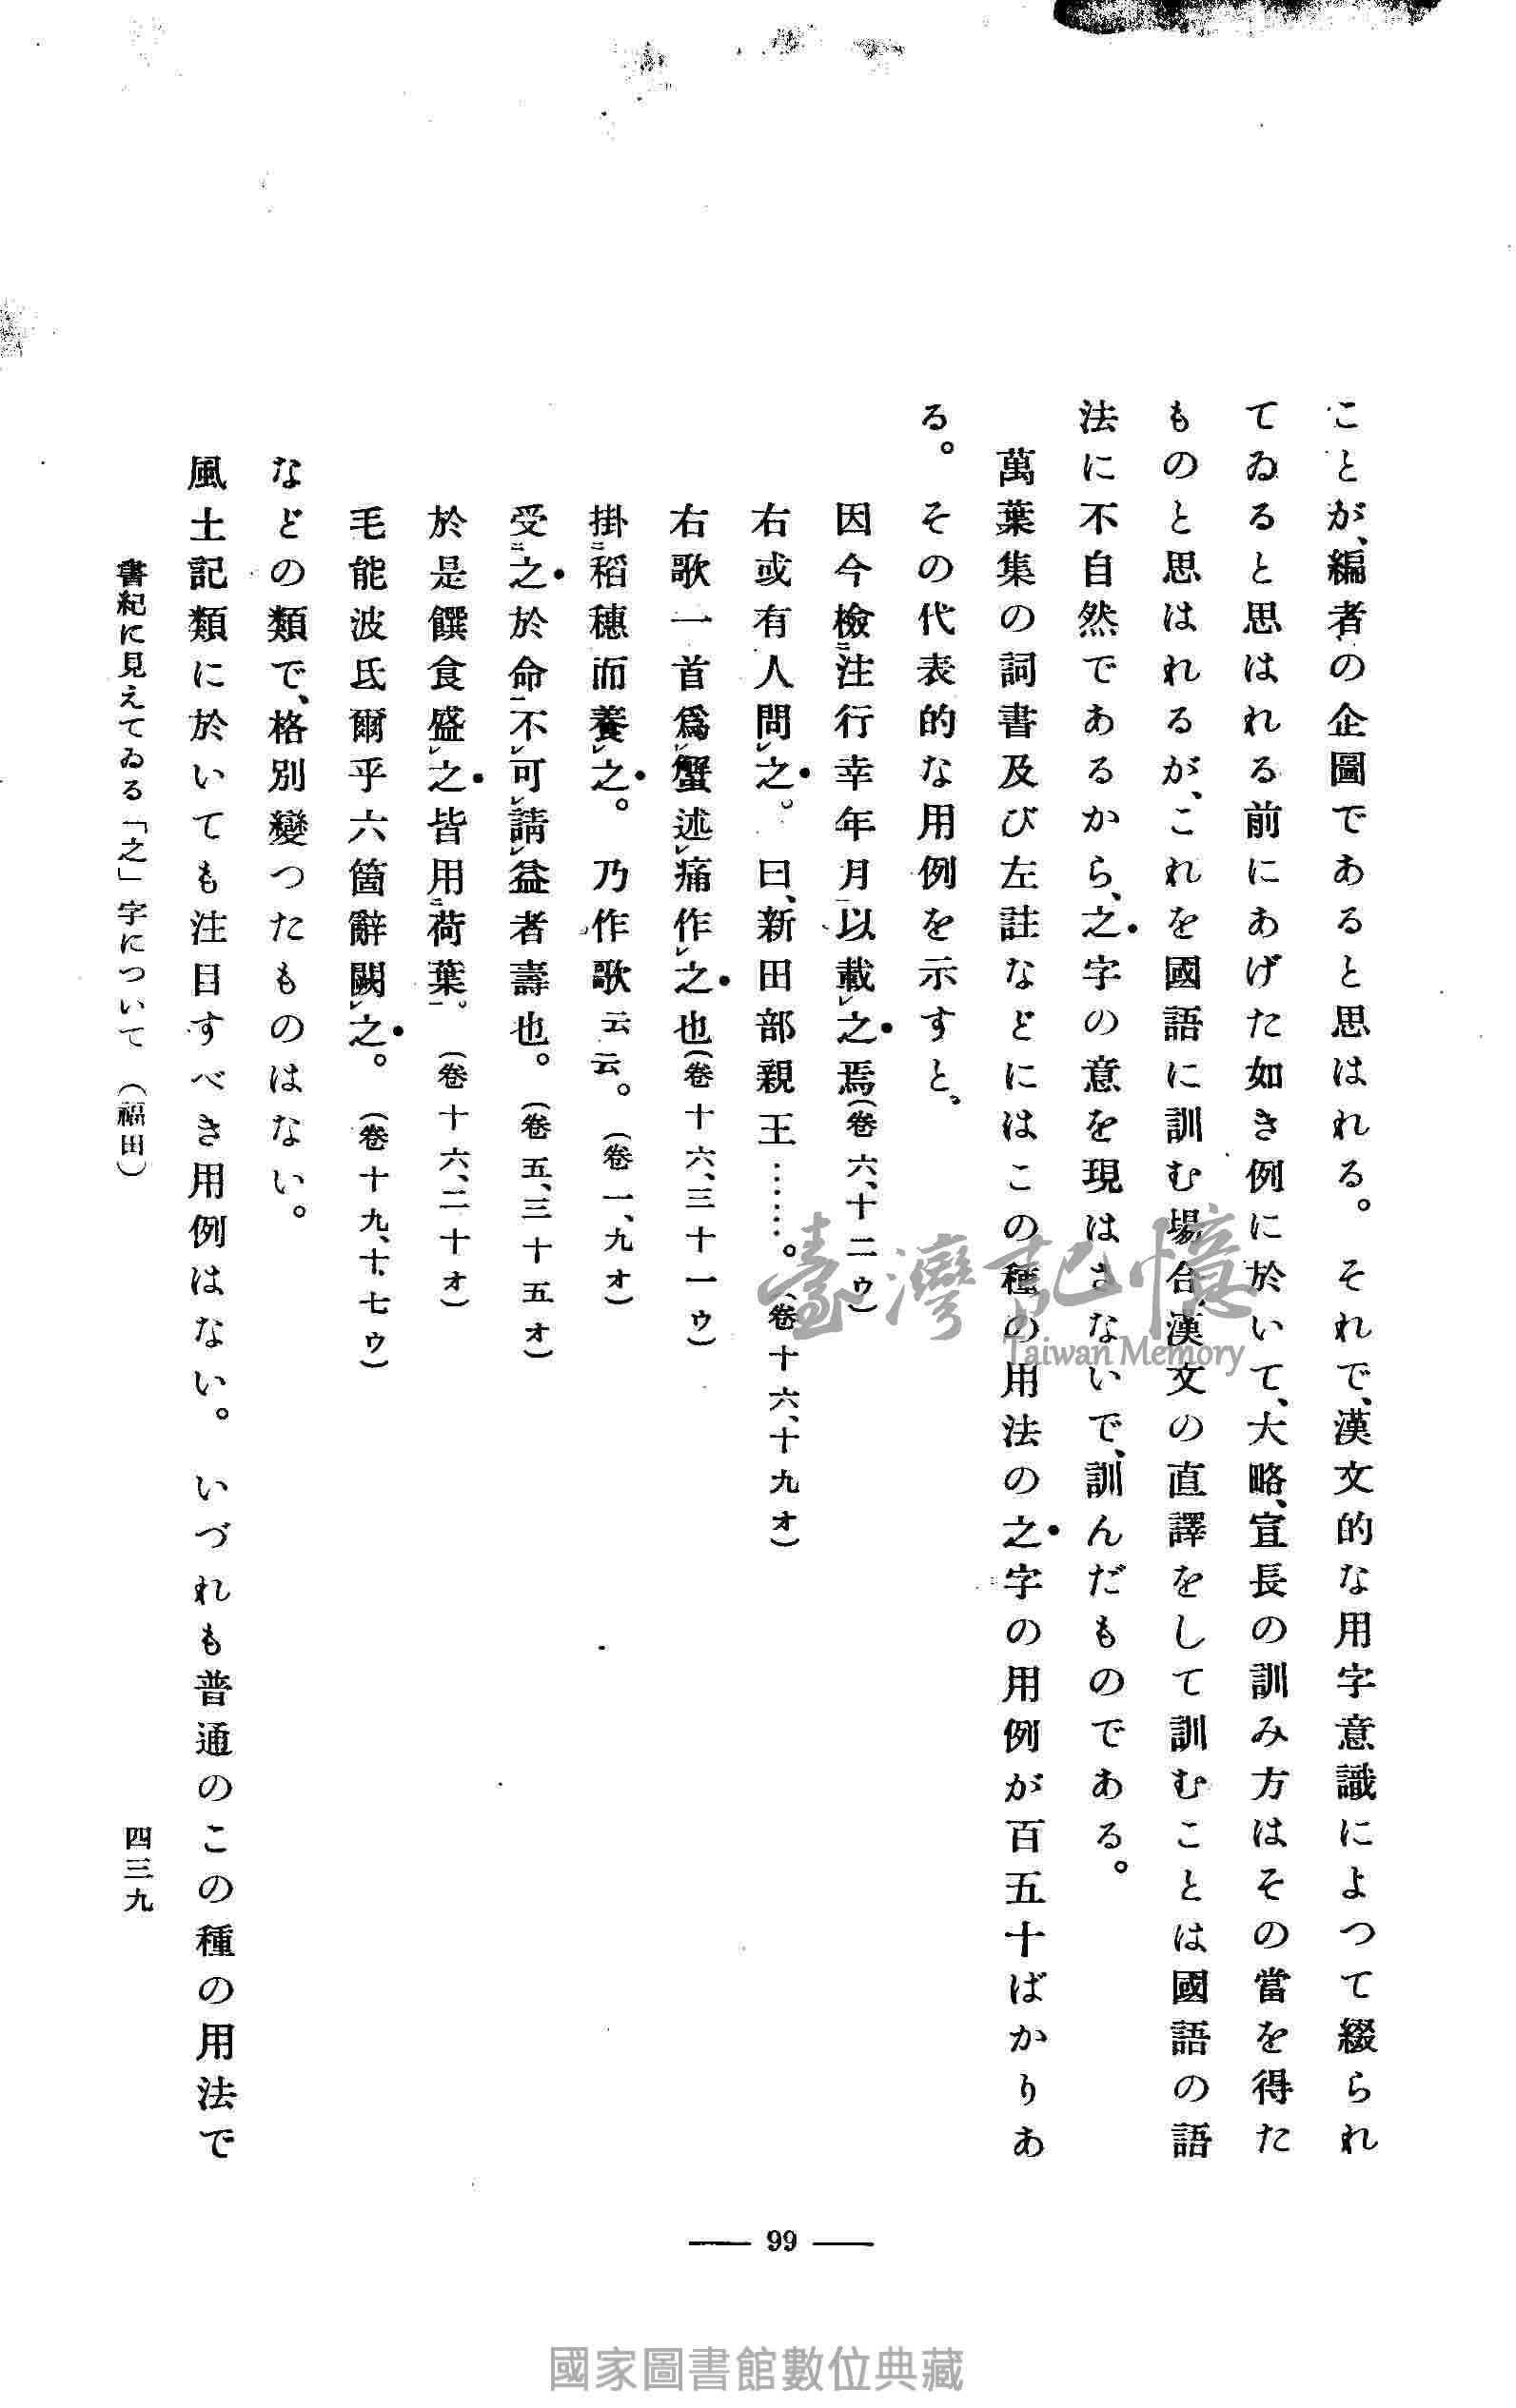 ことが、編者の企圖であると思はれる。それで、漢文的な用字意識によつて綴られ
てゐると思はれる前にあげた如き例に於いて、大略、宣長の訓み方はその當を得た
ものと思はれるが、これを國語に訓む場合、漢文の直譯をして訓むことは國語の語
法に不自然であるから、之字の意を現はさないで、訓んだものである。
萬葉集の詞書及び左註などにはこの種の用法の之字の用例が百五十ばかりあ
る。その代表的な用例を示すと、
因今檢二注行幸年月一以載レ之焉(卷六、十二ウ)
右或有人問レ之。曰、新田部親王……。(卷十六、十九オ)
右歌一首爲レ蟹述レ痛作レ之也(卷十六、三十一ウ)
掛二稻穗而養レ之。乃作歌云云。(卷一、九オ)
受二之於命一不レ可レ請レ益者壽也。(卷五、三十五オ)
於是饌食盛レ之皆用二荷葉一。(卷十六、二十オ)
毛能波氐爾乎六箇辭闕レ之。(卷十九、十七ウ)
などの類で、格別變つたものはない。
風土記類に於いても注目すべき用例はない。いづれも普通のこの種の用法で
書紀に見えてゐる「之」字について(福田)
四三九
99
臺灣記憶
Taiwan Memory
國家圖書館數位典藏